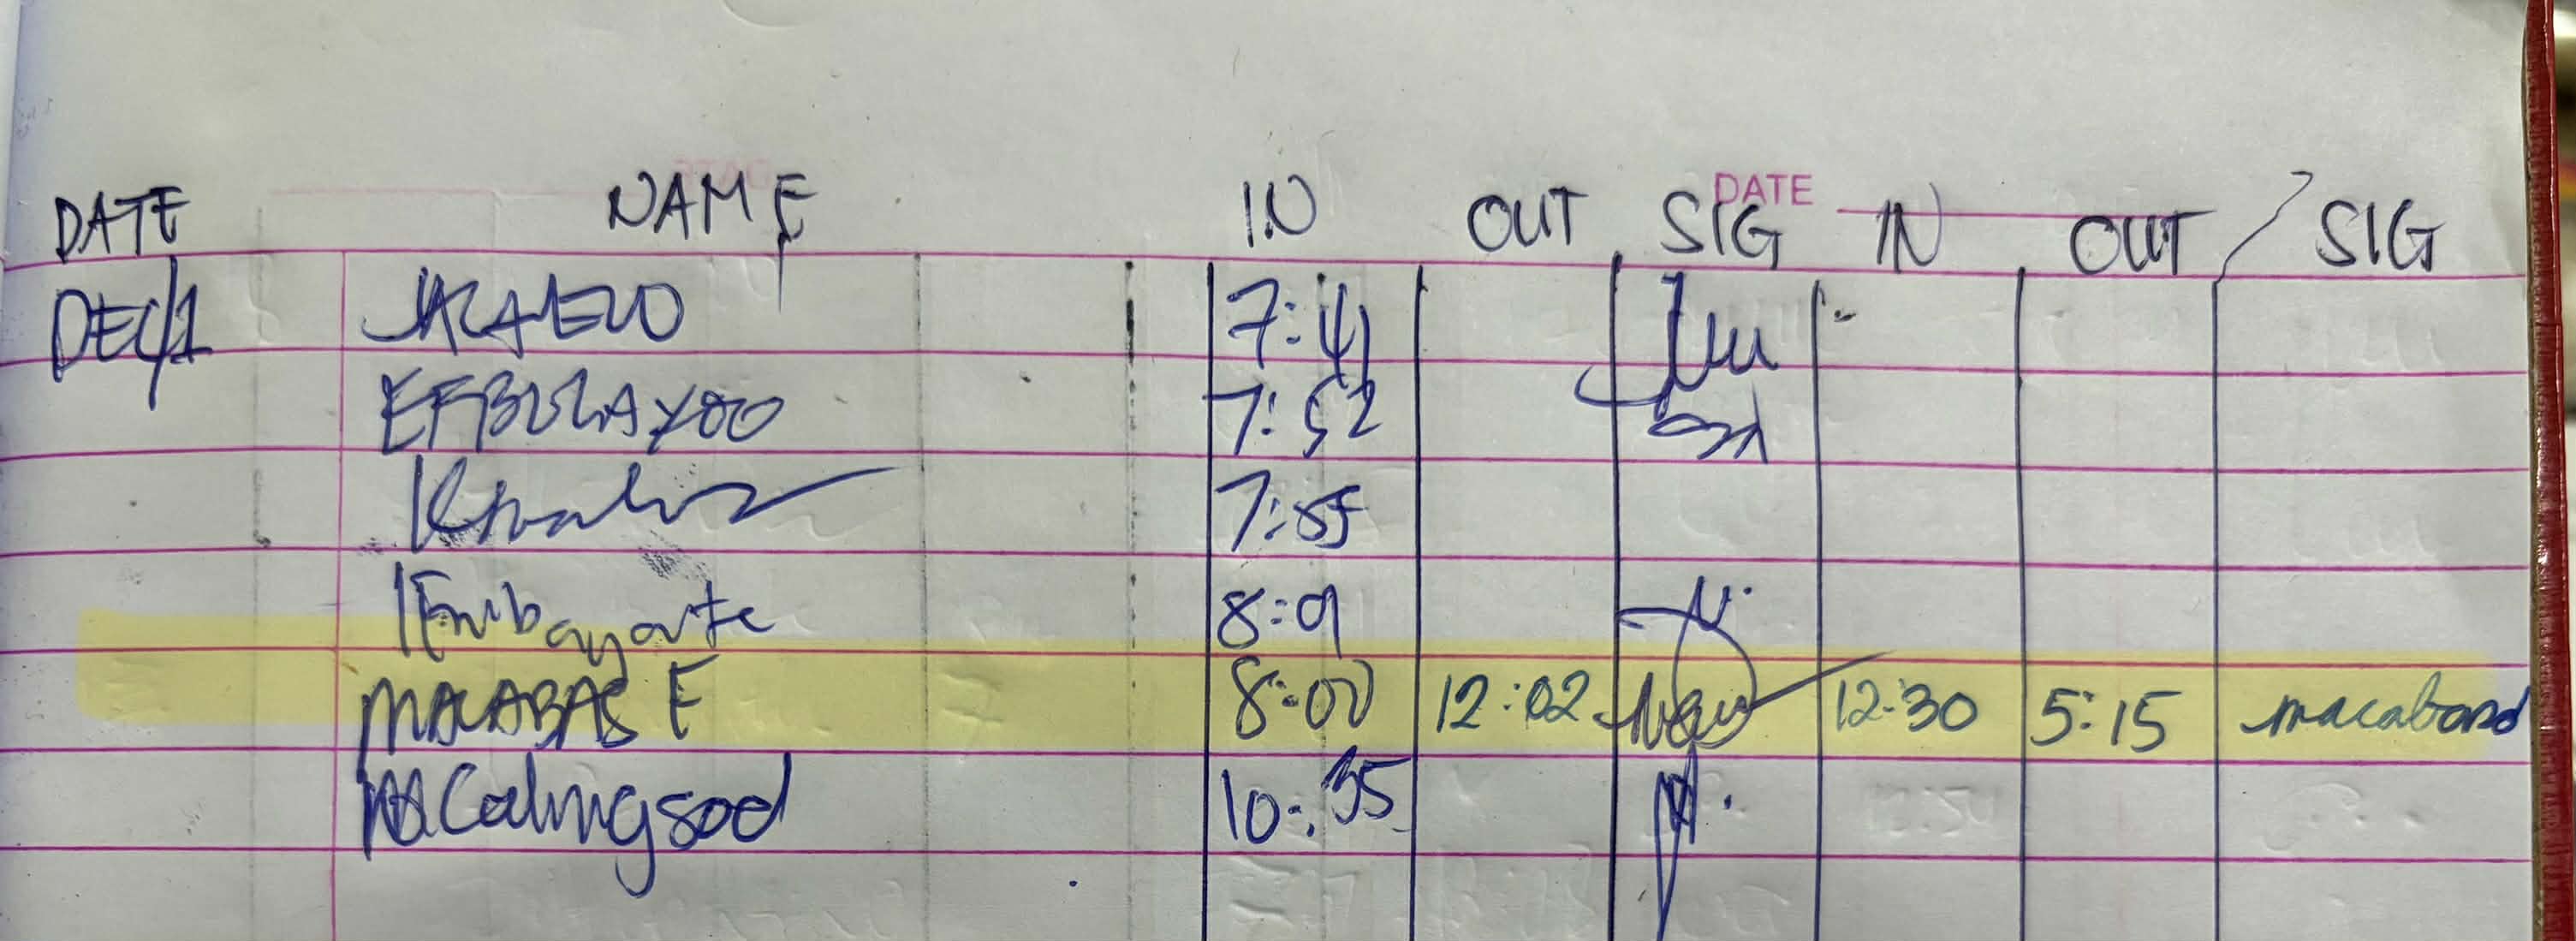 DATE
DATE NAME IN OUT SIG IN OUT SIG
DEC/1 7:41
EFBULAYOO 7:52
7:55
Embayarte 8:09
MACABAS E 8:00 12:02 12:30 5:15 macabasd
Calingsod 10:35